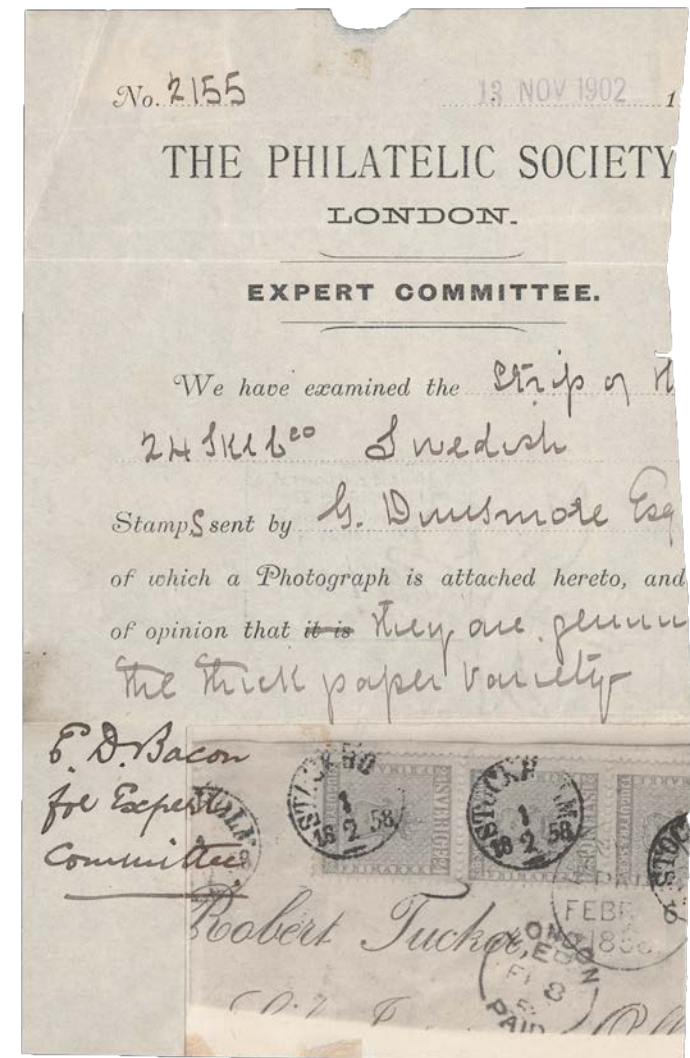 No. 2155
13 NOV 1902 1
THE PHILATELIC SOCIETY
LONDON.
EXPERT COMMITTEE.
We have examined the Strip of
24 Skl bco Swedish
Stamps sent by G. Dunsmore Esq
of which a Photograph is attached hereto, and
of opinion that it is they are genuin
the thick paper variety
E. D. Bacon
for Expert
Committee
STOCKHO
1
2
18 58
STOCKH M
1
2
18 58
SVERIGE
STOC
FEBR
185
Robert Tucker,
LONDON
FE 8
PAID